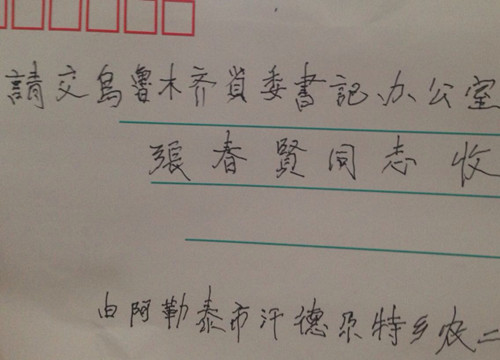 請交烏魯木齐省委書記办公室
張春賢同志收
由阿勒泰市汗德尕特乡农二